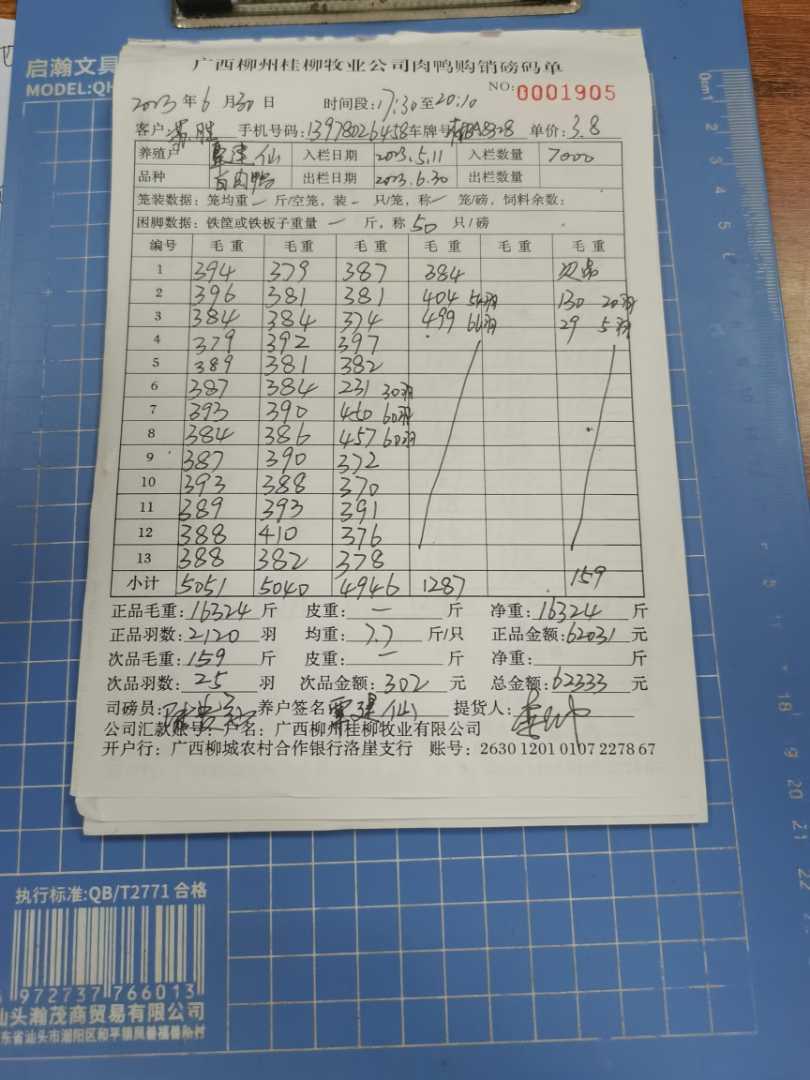 启瀚文具
MODEL:QH
广西柳州桂柳牧业公司肉鸭购销磅码单
NO: 0001905
2023年6月30日 时间段:17:30至20:10
客户: 手机号码:13978026458 车牌号: 单价:3.8
养殖户 覃建仙 入栏日期 2023.5.11 入栏数量 7000
品种 白肉鸭 出栏日期 2023.6.30 出栏数量
笼装数据: 笼均重 一 斤/空笼, 装 一 只/笼, 称 一 笼/磅, 饲料余数:
困脚数据: 铁筐或铁板子重量 一 斤, 称 50 只/磅
编号 毛重 毛重 毛重 毛重 毛重 毛重
1 394 379 387 384 次品
2 396 381 381 404 54羽 130 20羽
3 384 384 374 499 66羽 29 5羽
4 379 392 397
5 389 381 382
6 387 384 231 30羽
7 393 390 450 60羽
8 384 386 457 60羽
9 387 390 372
10 393 388 370
11 389 393 391
12 388 410 376
13 388 382 378
小计 5051 5040 4946 1287 159
正品毛重:16324 斤 皮重: 一 斤 净重:16324 斤
正品羽数:2120 羽 均重:7.7 斤/只 正品金额:62031 元
次品毛重:159 斤 皮重: 一 斤 净重: 斤
次品羽数:25 羽 次品金额:302 元 总金额:62333 元
司磅员: 养户签名 覃建仙 提货人:
公司汇款账号: 户名: 广西柳州桂柳牧业有限公司
开户行: 广西柳城农村合作银行洛崖支行 账号: 2630 1201 0107 2278 67
执行标准:QB/T2771 合格
972737 766013
汕头瀚茂商贸易有限公司
东省汕头市潮阳区和平镇凤善福善路村
0cm 1
2
3
4
5
18
19
20
21
22